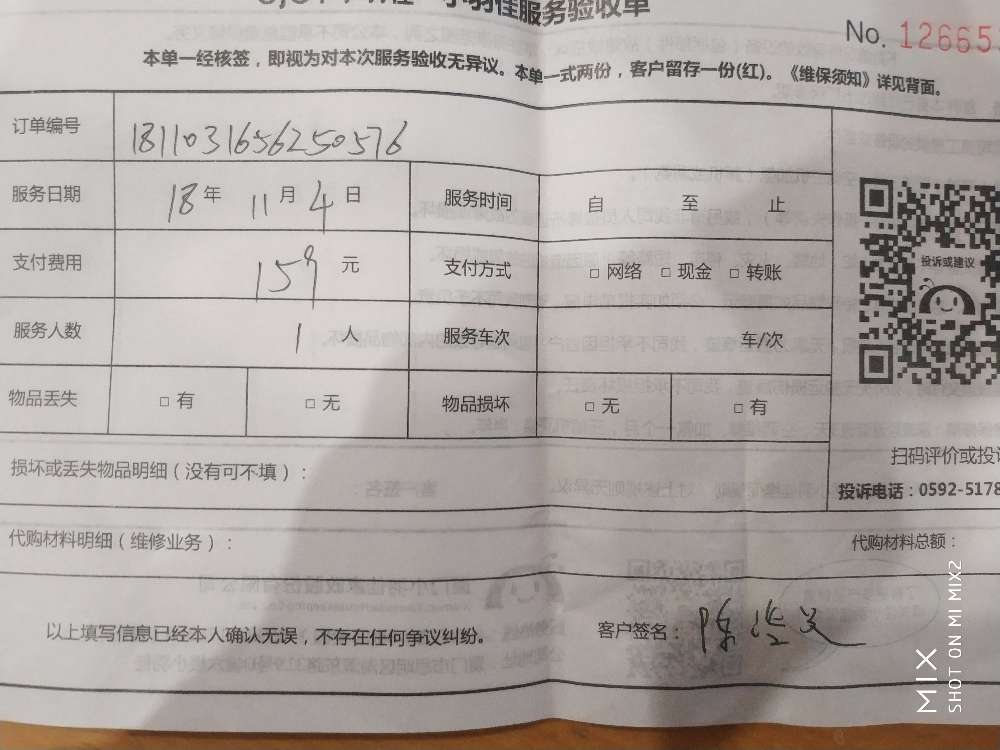 小羽佳服务验收单
No. 12665
本单一经核签，即视为对本次服务验收无异议。本单一式两份，客户留存一份(红)。《维保须知》详见背面。
订单编号 1811031656250576
服务日期 18 年 11 月 4 日 服务时间 自 至 止
支付费用 159 元 支付方式 □ 网络 □ 现金 □ 转账
服务人数 1 人 服务车次 车/次
物品丢失 □ 有 □ 无 物品损坏 □ 无 □ 有
投诉或建议
扫码评价或投诉
投诉电话：0592-5178
损坏或丢失物品明细（没有可不填）：
代购材料明细（维修业务）： 代购材料总额：
以上填写信息已经本人确认无误，不存在任何争议纠纷。 客户签名：陈
MIX
SHOT ON MI MIX2